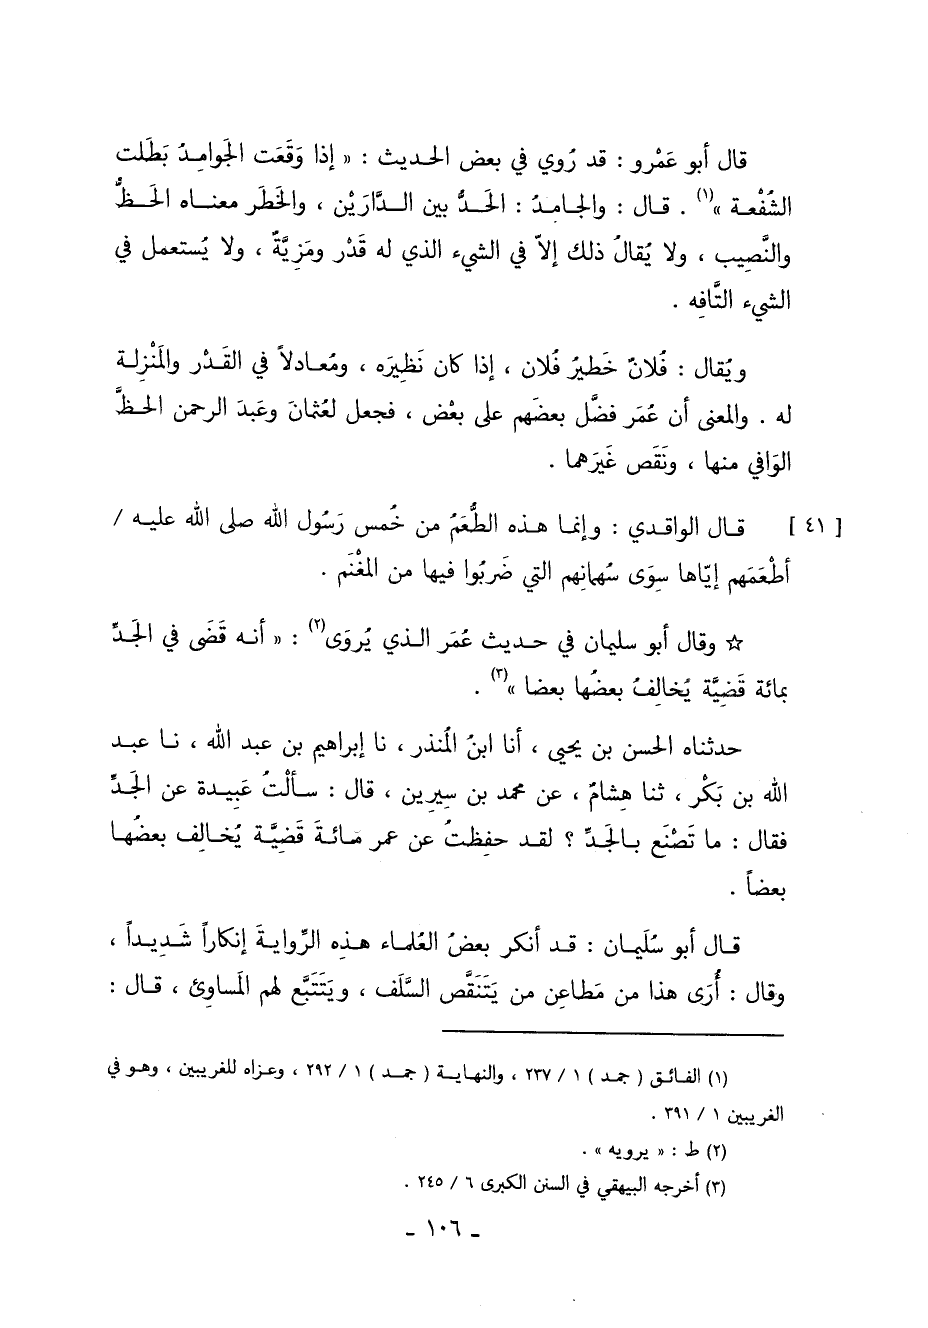 قال أبو عَمْرو : قد رُوي في بعض الحديث : « إذا وَقَعَت الجَوامِدُ بَطَلت
الشُفْعة »(١) . قـال : والجـامِدُ : الحَـدُّ بين الـدَّارَيْن ، والخَطَر معنـاه الحَـظُّ
والنَّصِيب ، ولا يُقالُ ذلك إلاّ في الشيء الذي له قَدْر ومَزِيَّةٌ ، ولا يُستعمل في
الشيء التَّافِه .
ويُقال : فُلانٌ خَطيرُ فُلان ، إذا كان نَظِيرَه ، ومُعـادلاً في القَـدْر والمَنْزِلـة
له . والمعنى أن عُمَر فضَّل بعضَهم على بعْض ، فجعل لعُثمانَ وعَبدَ الرحمن الحـظَّ
الوَافي منها ، ونَقَص غَيرَهما .
[ ٤١ ] قـال الواقدي : وإنما هذه الطُّعَمُ من خُمس رَسُول الله صلى الله عليـه /
أطْعَمَهم إيّاها سِوَى سُهمانِهم التي ضَربُوا فيها من المَغْنَم .
☆ وقال أبو سليمان في حـديث عُمَر الـذي يُروَى(٢) : « أنـه قَضَى في الجَـدِّ
بمائة قَضِيَّة يُخالِفُ بعضُها بعضا »(٣) .
حدثناه الحسن بن يحيى ، أنا ابنُ المُنذر ، نا إبراهيم بن عبد الله ، نـا عبـد
الله بن بَكْر ، ثنا هِشامٌ ، عن محمد بن سِيرين ، قال : سـألْتُ عَبِيـدة عن الجَـدِّ
فقال : ما تَصْنَع بـالجَـدِّ ؟ لقـد حفِظتُ عن عمر مـائـةَ قَضِيَّـة يُخـالِف بعضُهـا
بعضاً .
قـال أبو سُلَيمان : قـد أنكر بعضُ العُلماء هـذه الرِّوايـةَ إنكاراً شَديـداً ،
وقال : أُرَى هذا من مَطاعِن من يَتَنَقَّص السَّلَف ، ويَتَتَبَّع لهم المَساوِئ ، قـال :
(١) الفـائـق ( جمـد ) ١ / ٢٣٧ ، والنهايـة ( جمـد ) ١ / ٢٩٢ ، وعزاه للغريبين ، وهـو في
الغريبين ١ / ٣٩١ .
(٢) ط : « يرويه » .
(٣) أخرجه البيهقي في السنن الكبرى ٦ / ٢٤٥ .
- ١٠٦ -